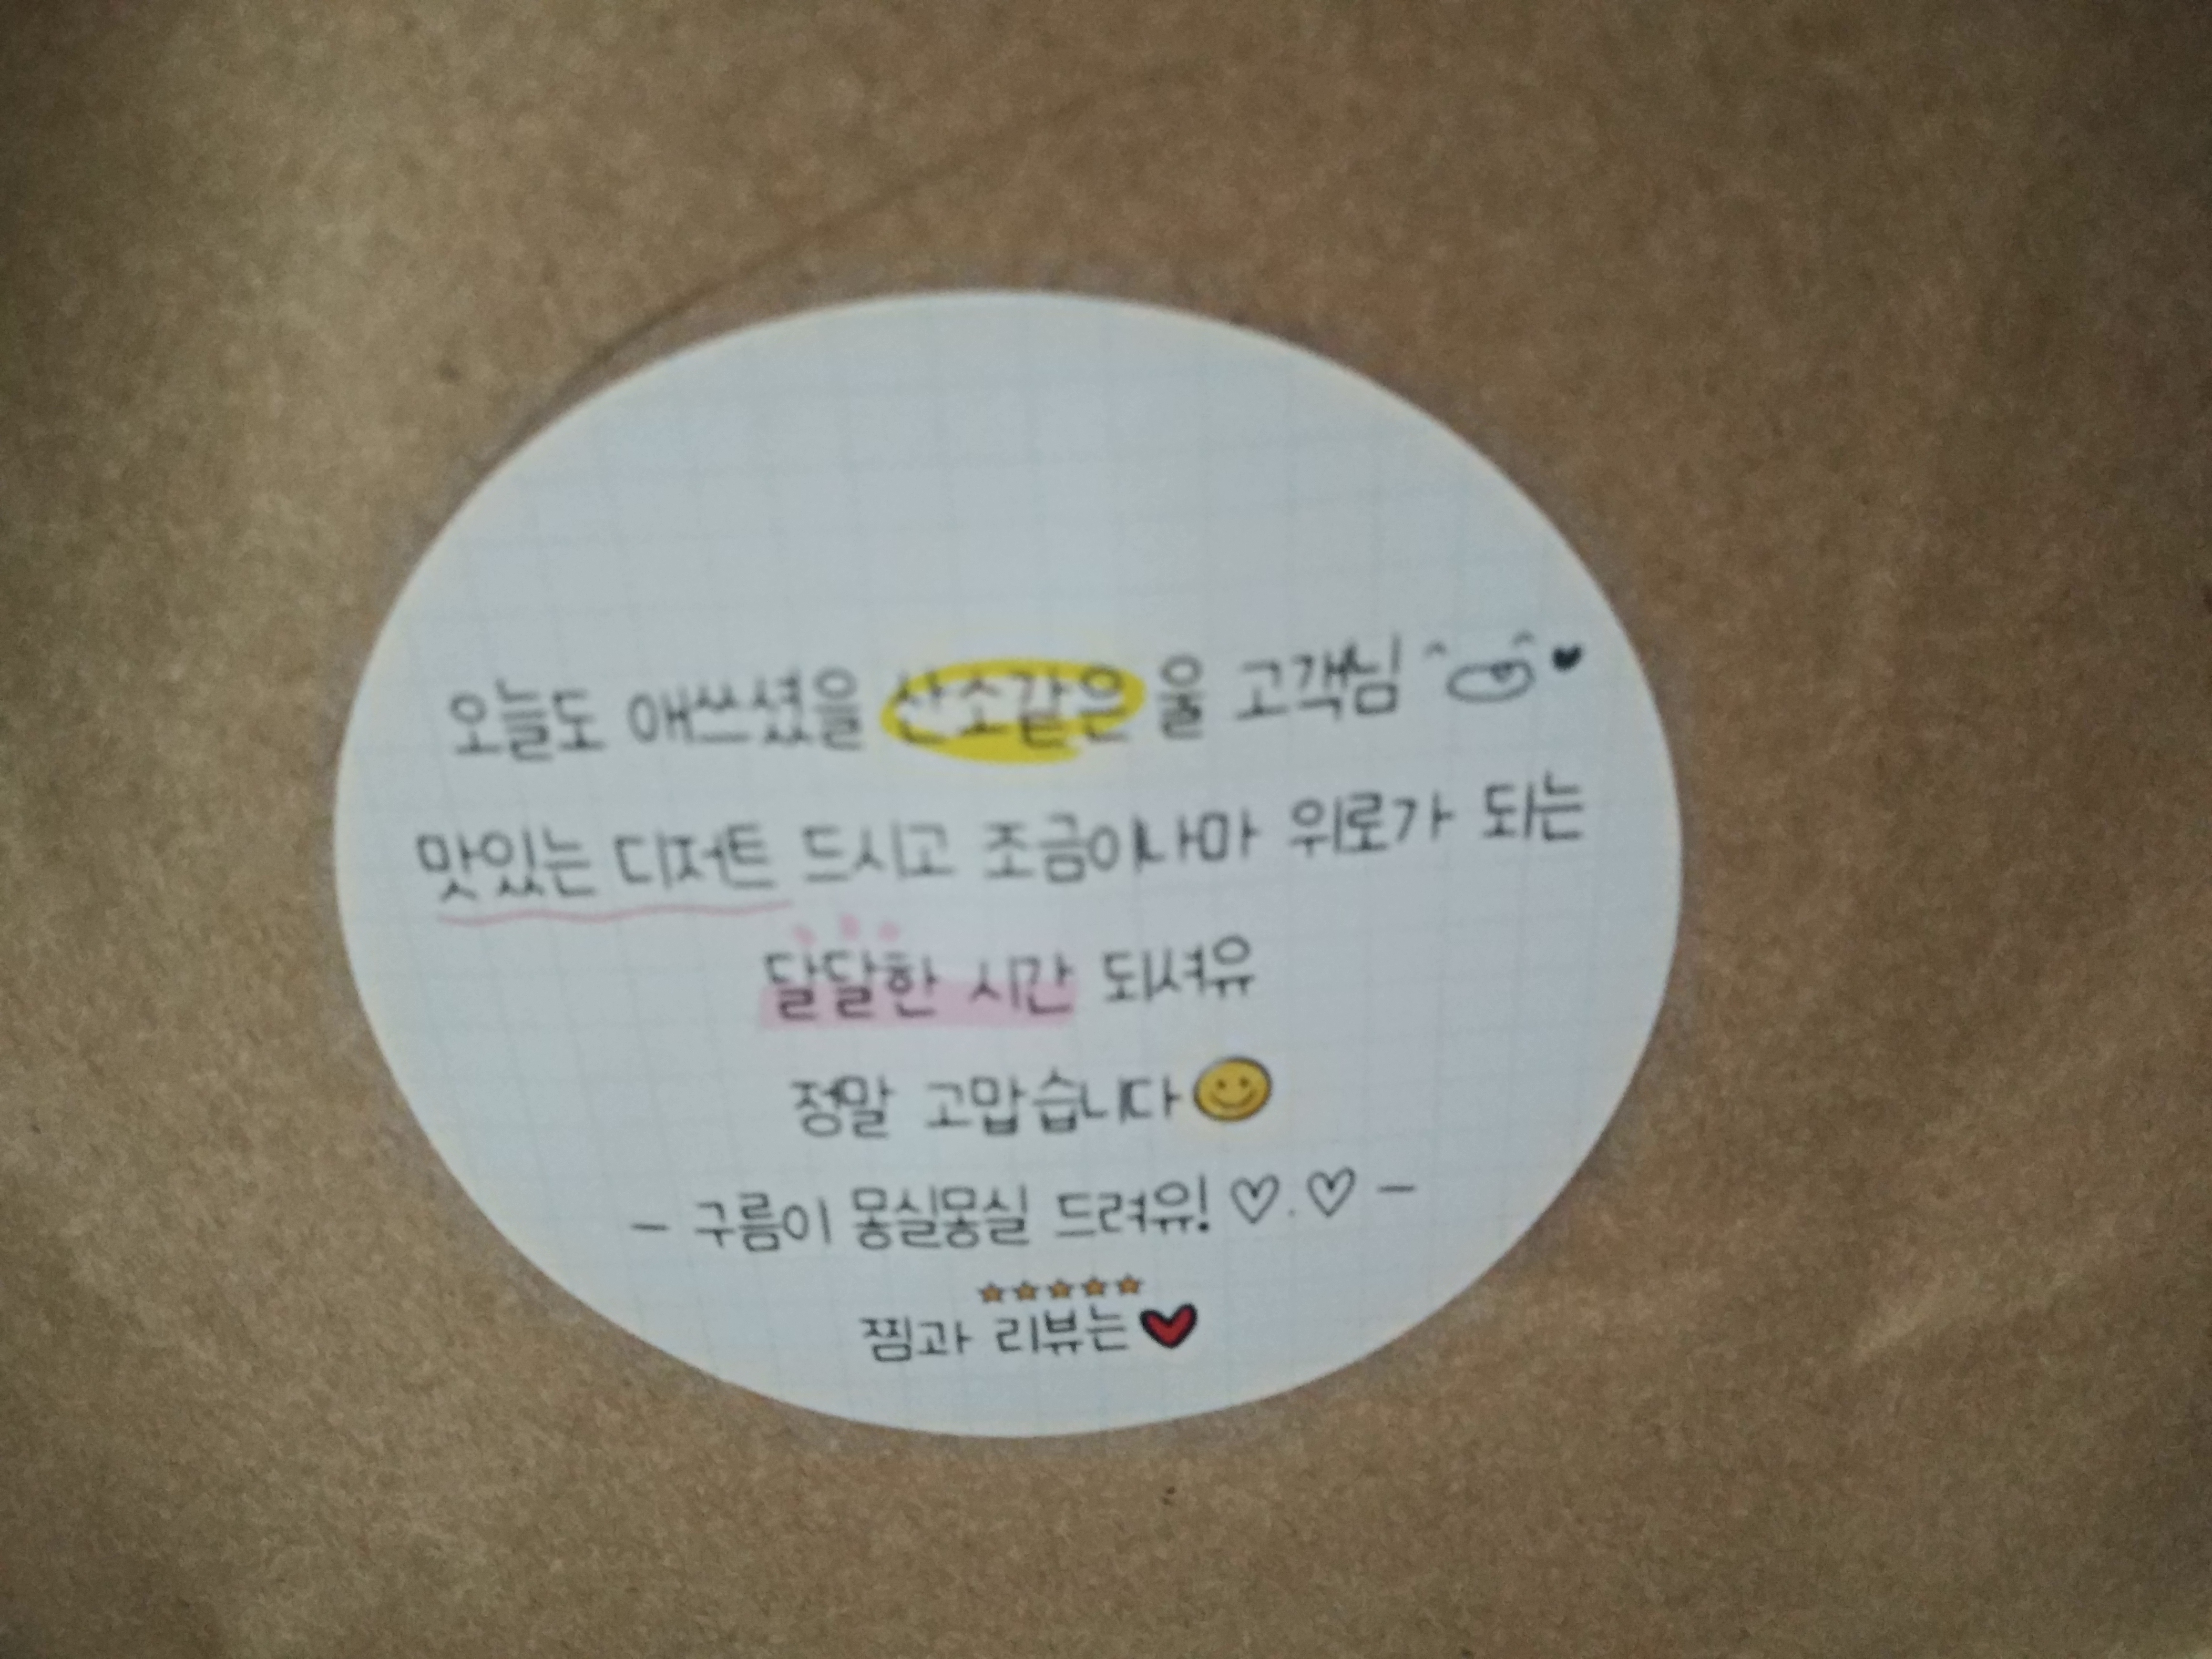 오늘도 애쓰셨을 산소같은 울 고객님 ♥
맛있는 디저트 드시고 조금이나마 위로가 되는
달달한 시간 되셔유
정말 고맙습니다
- 구름이 몽실몽실 드려유! ♡.♡ -
★★★★★
찜과 리뷰는 ♥